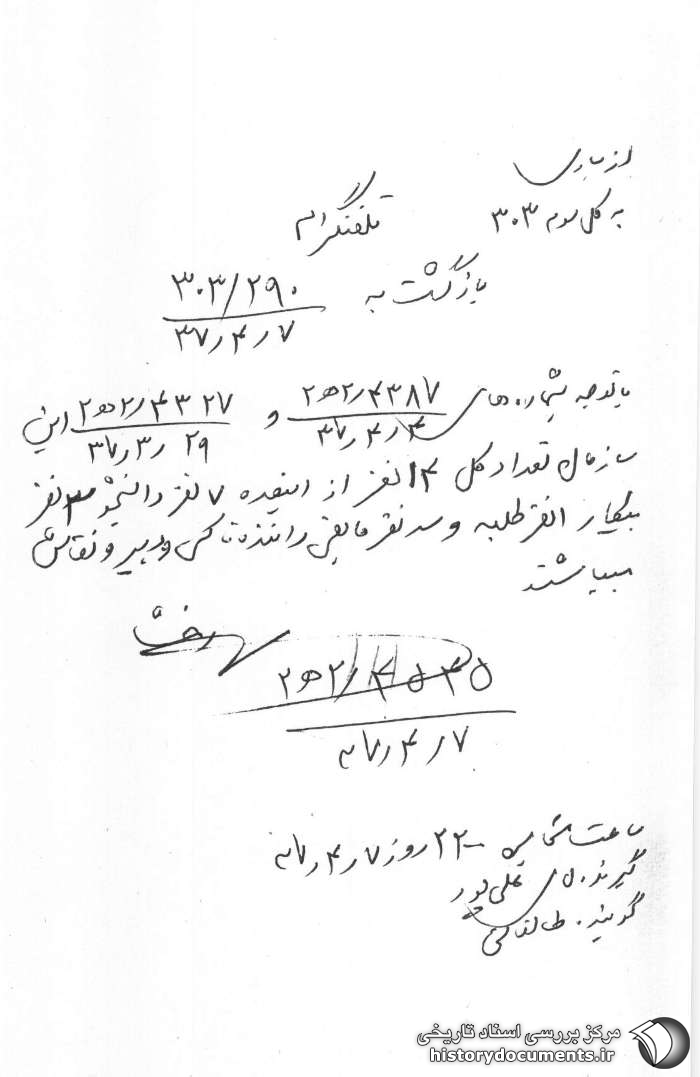 از ساری
به کل سوم ۳۰۳
تلفنگرام
بازگشت به ۳۰۳/۲۹۰
۳۷٫۴٫۷
باتوجه بشماره‌های ۲ه‍۲٫۴۳۸۷ و ۲ه‍۲٫۴۳۲۷ این
۳۷٫۴٫۴ ۳۷٫۳٫۲۹
سازمان تعداد کل ۱۴ نفر از اینعده ۷ نفر دانشجو ۳ نفر
بیکار ۱ نفر طلبه و سه نفر مابقی راننده تاکسی و دبیر و نقاش
میباشند
۲ه‍۲٫۴۵۴۵
۷٫۴٫
ساعت مخابره ۲۲۰۰ روز ۷٫۴٫
گیرنده
گوینده. طالقانی
مرکز بررسی اسناد تاریخی
historydocuments.ir